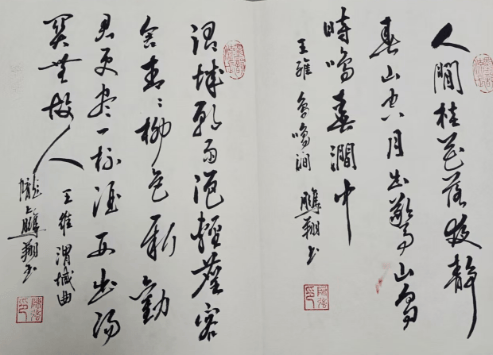 人閒桂花落夜静
春山空月出驚山鳥
時鳴春澗中
王維 鳥鳴澗 鵬翔书
渭城朝雨浥輕塵客
舍青〻柳色新勸
君更尽一杯酒西出陽
関無故人
王維 渭城曲
隴上鵬翔书